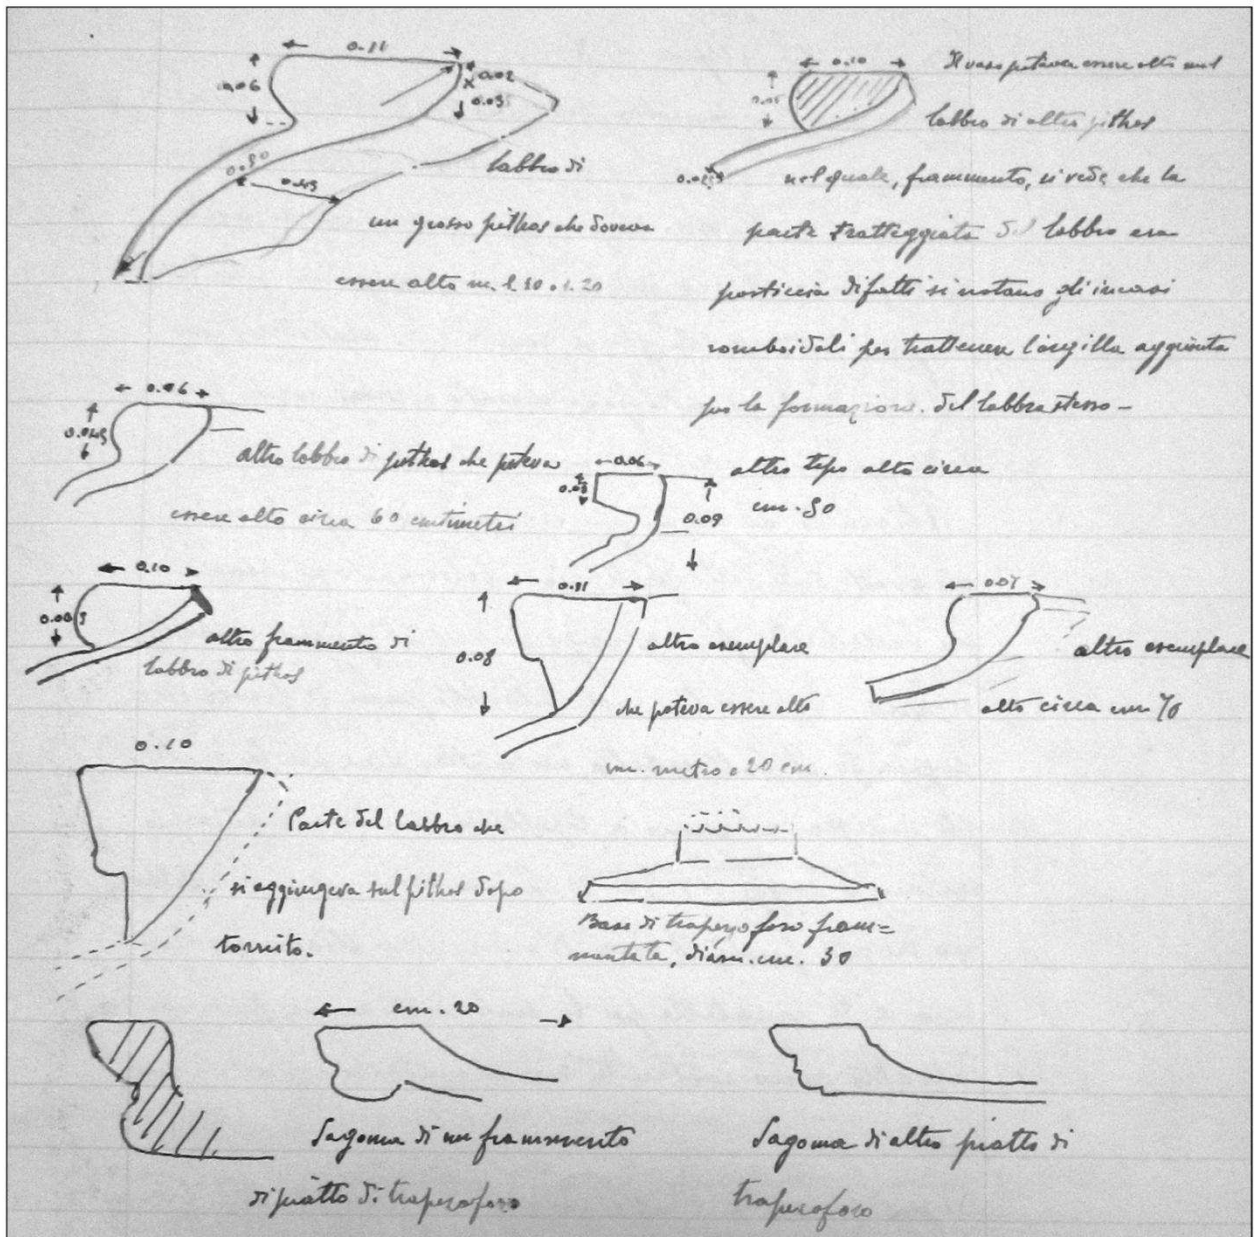 0.11
0.06
0.02
0.035
0.50
0.45
labbro di
un grosso pithos che doveva
essere alto m. 1.10 o 1.20
0.10
Il vaso poteva essere alto
labbro di altro pithos
nel quale, frammento, si vede che la
parte tratteggiata del labbro era
posticcia difatti si notano gli incavi
romboidali per trattenere l'argilla aggiunta
per la formazione del labbro stesso –
0.06
0.045
altro labbro di pithos che poteva
essere alto circa 60 centimetri
0.06
0.03
0.09
altro tipo alto circa
cm. 50
0.10
altro frammento di
labbro di pithos
0.11
0.08
altro esemplare
che poteva essere alto
un. metro e 20 cm.
0.07
altro esemplare
alto circa cm 70
0.10
Parte del labbro che
si aggiungeva sul pithos dopo
tornito.
Base di trapezoforo fram=
mentata, diam. cm. 30
cm. 20
Sagoma di un frammento
di piatto di trapezoforo
Sagoma di altro piatto di
trapezoforo